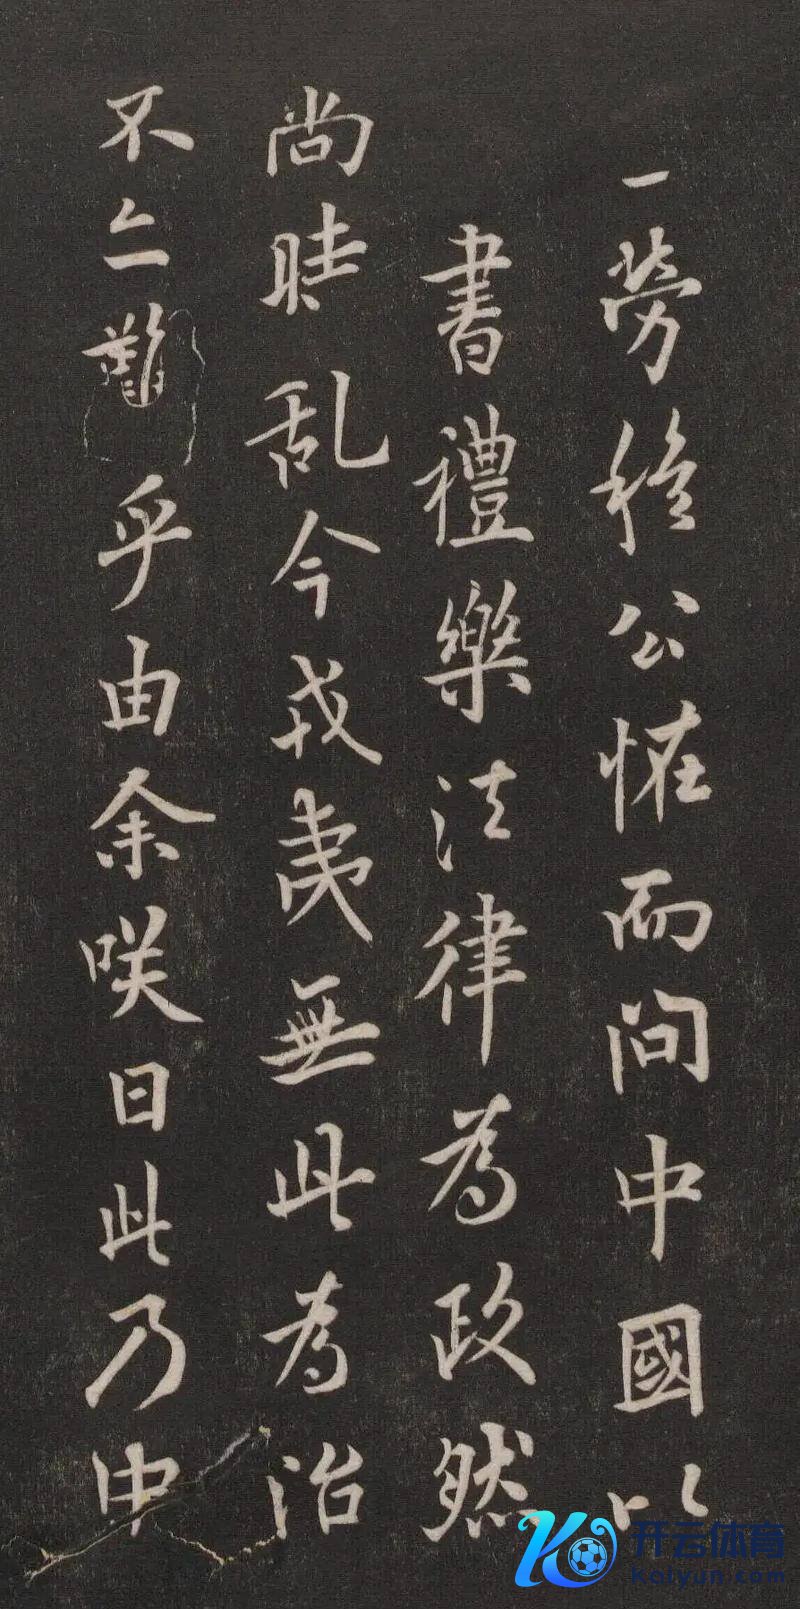 一勞穆公恠而问中國以
書禮樂法律為政然
尚時乱今戎夷無此為治
不亦難乎由余咲曰此乃中
开云体育
Kaiyun.com